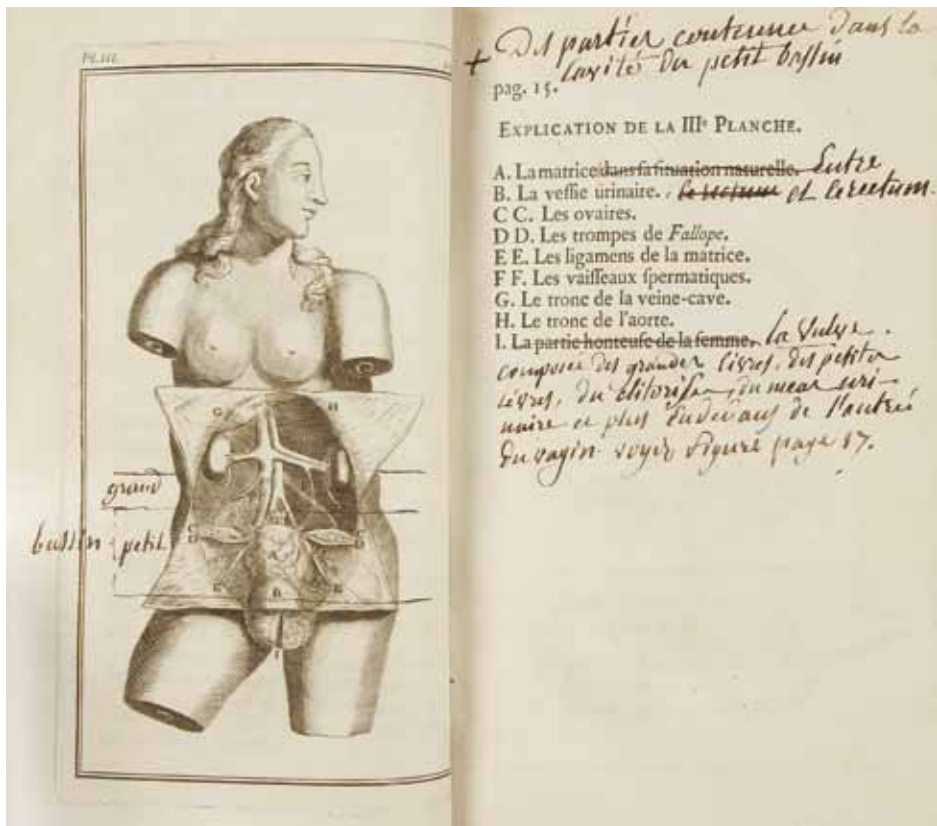 Pl. III.
grand
bassin petit
+ Des partiés contenues dans la
cavité du petit bassin
pag. 15.
EXPLICATION DE LA IIIe PLANCHE.
A. La matrice dans ſa ſituation naturelle. Entre
B. La veſſie urinaire. le rectum et le rectum.
C C. Les ovaires.
D D. Les trompes de Fallope.
E E. Les ligamens de la matrice.
F F. Les vaiſſeaux ſpermatiques.
G. Le tronc de la veine-cave.
H. Le tronc de l'aorte.
I. La partie honteuſe de la femme. la Vulve.
composée des grandes lèvres, des petites
lèvres, du clitoris, du meat uri-
naire et plus Endevans de l'entrée
du vagin voyez figure page 17.